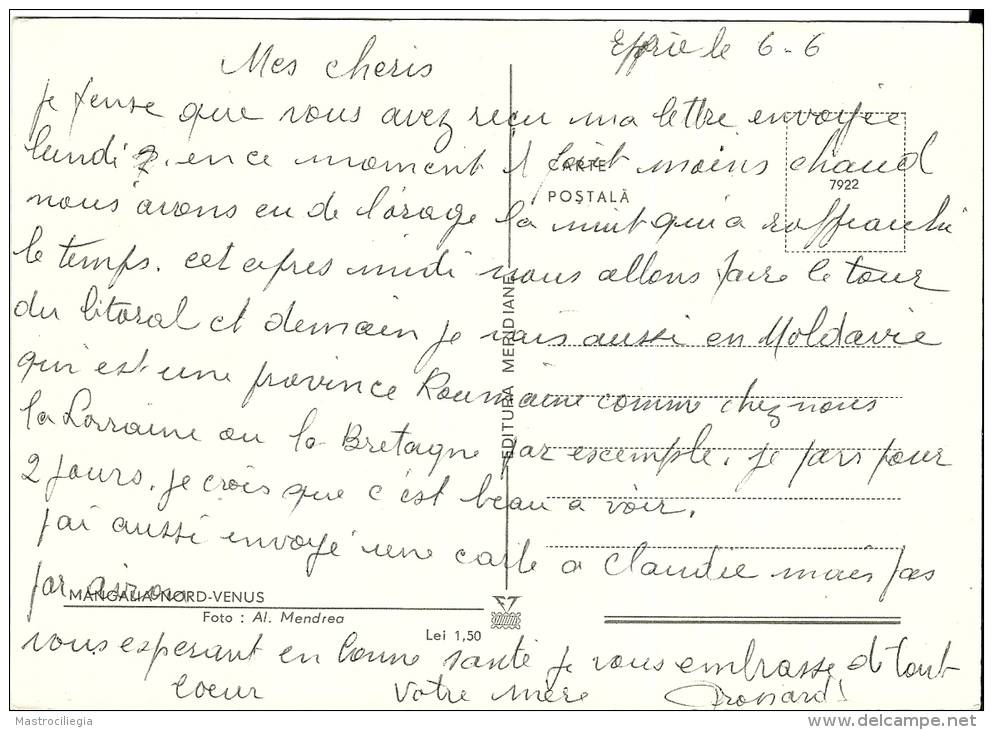 Efforie le 6-6
Mes cheris
je pense que vous avez reçu ma lettre envoyée
lundi 2. en ce moment il fait moins chaud
nous avons eu de l'orage la nuit qui a raffraichi
le temps. cet apres midi nous allons faire le tour
du litoral et demain je vais aussi en Moldavie
qui est une province Roumaine comme chez nous
la Lorraine ou la Bretagne par escemple. je pars pour
2 jours. je crois que c'est beau a voir.
j'ai aussi envoyé une carte a Claudie mais pas
par avion
vous esperant en bonne santé je vous embrasse de tout
coeur Votre mère
CARTE
POȘTALĂ
7922
EDITURA MERIDIANE
MANGALIA-NORD-VENUS
Foto : Al. Mendrea
Lei 1,50
Mastrociliegia
www.delcampe.net